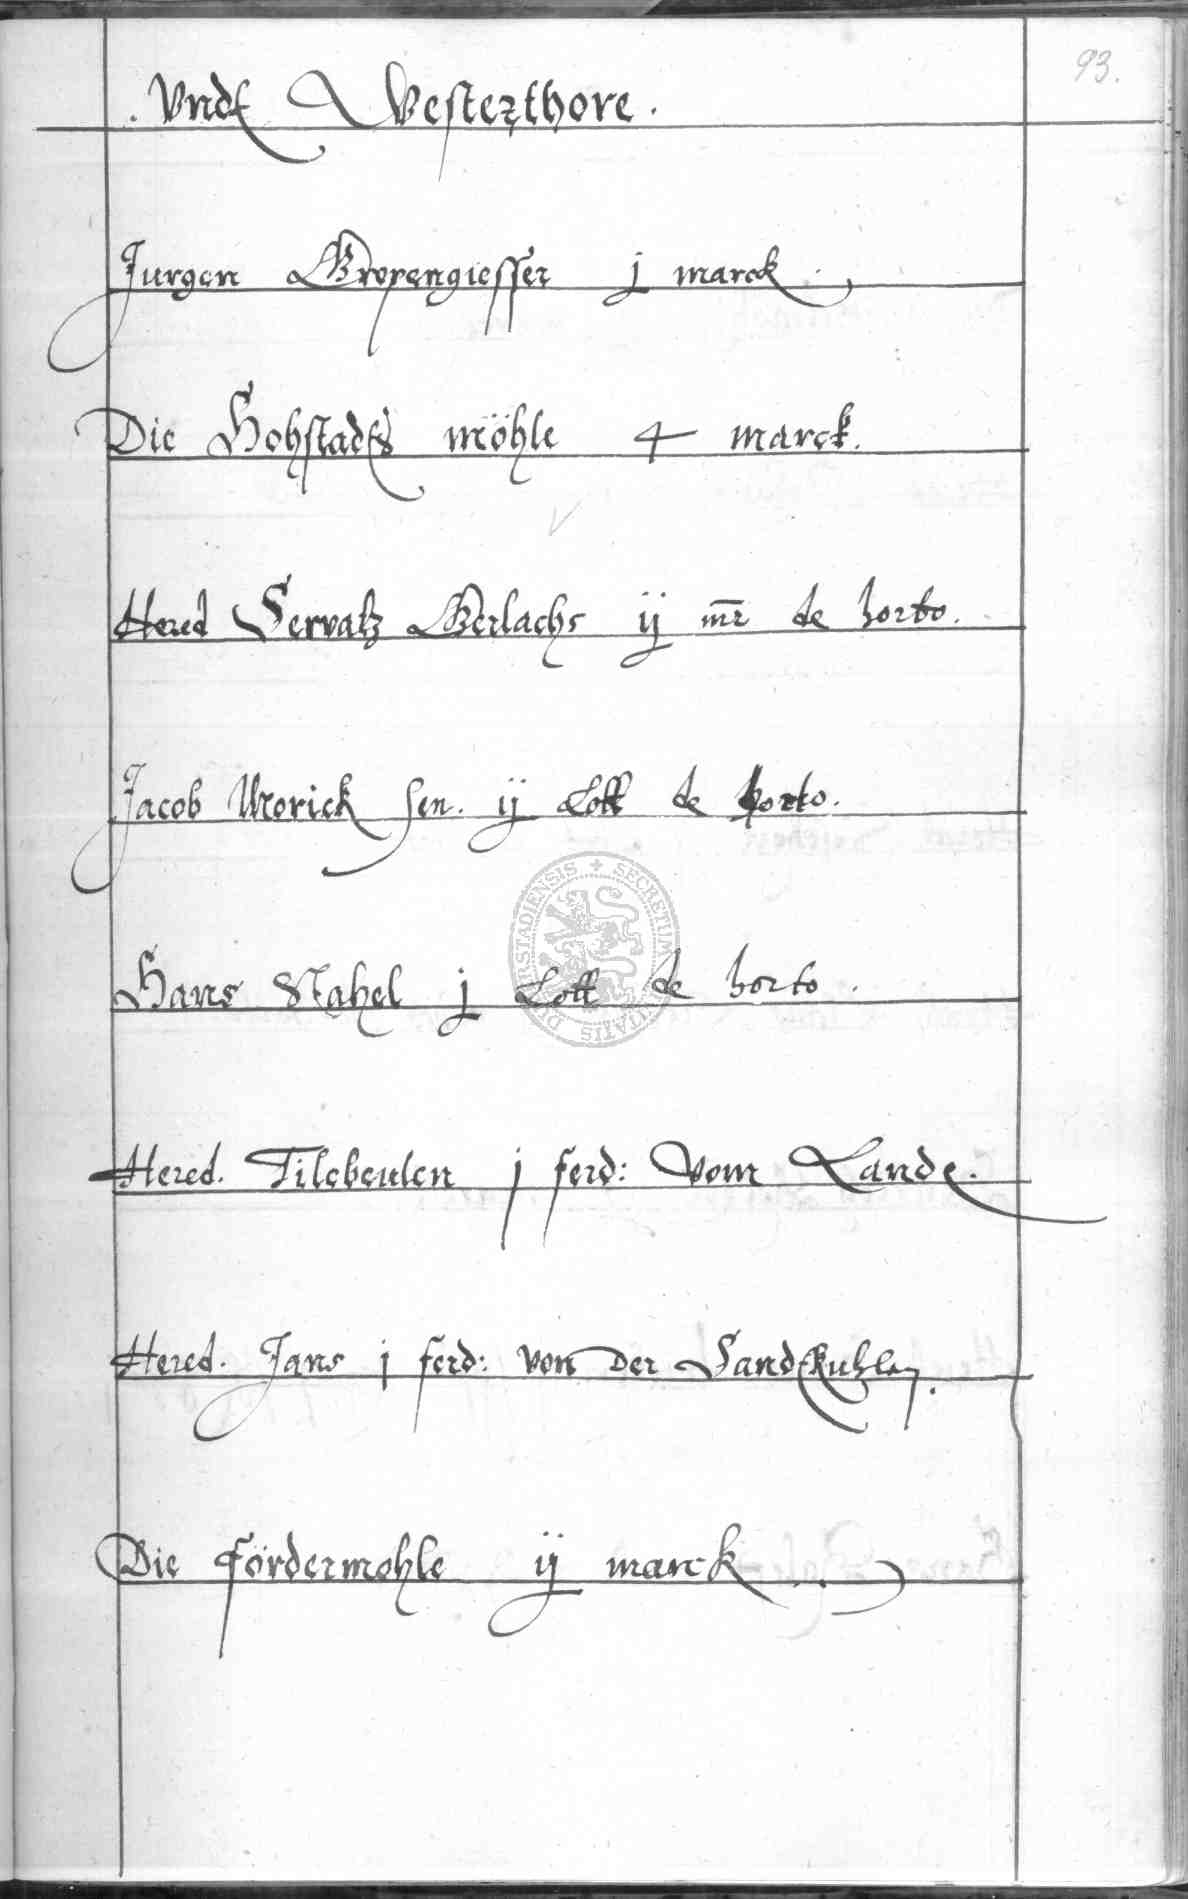 93.
. Vnde Westerthore .
Jurgen Gropengiesser j marck .
Die Hohstades möhle 4 marck.
Hered Servatz Gerlachs ij mr de horto.
Jacob Morick sen. ij Lott de horto.
Hans Stahel j Lott de horto .
Hered. Tilebeulen j ferd: Vom Lande.
Hered. Jans j ferd: von der Sandkuhlen.
Die fördermohle ij marck
SECRETUM CIVITATIS DUDERSTADIENSIS